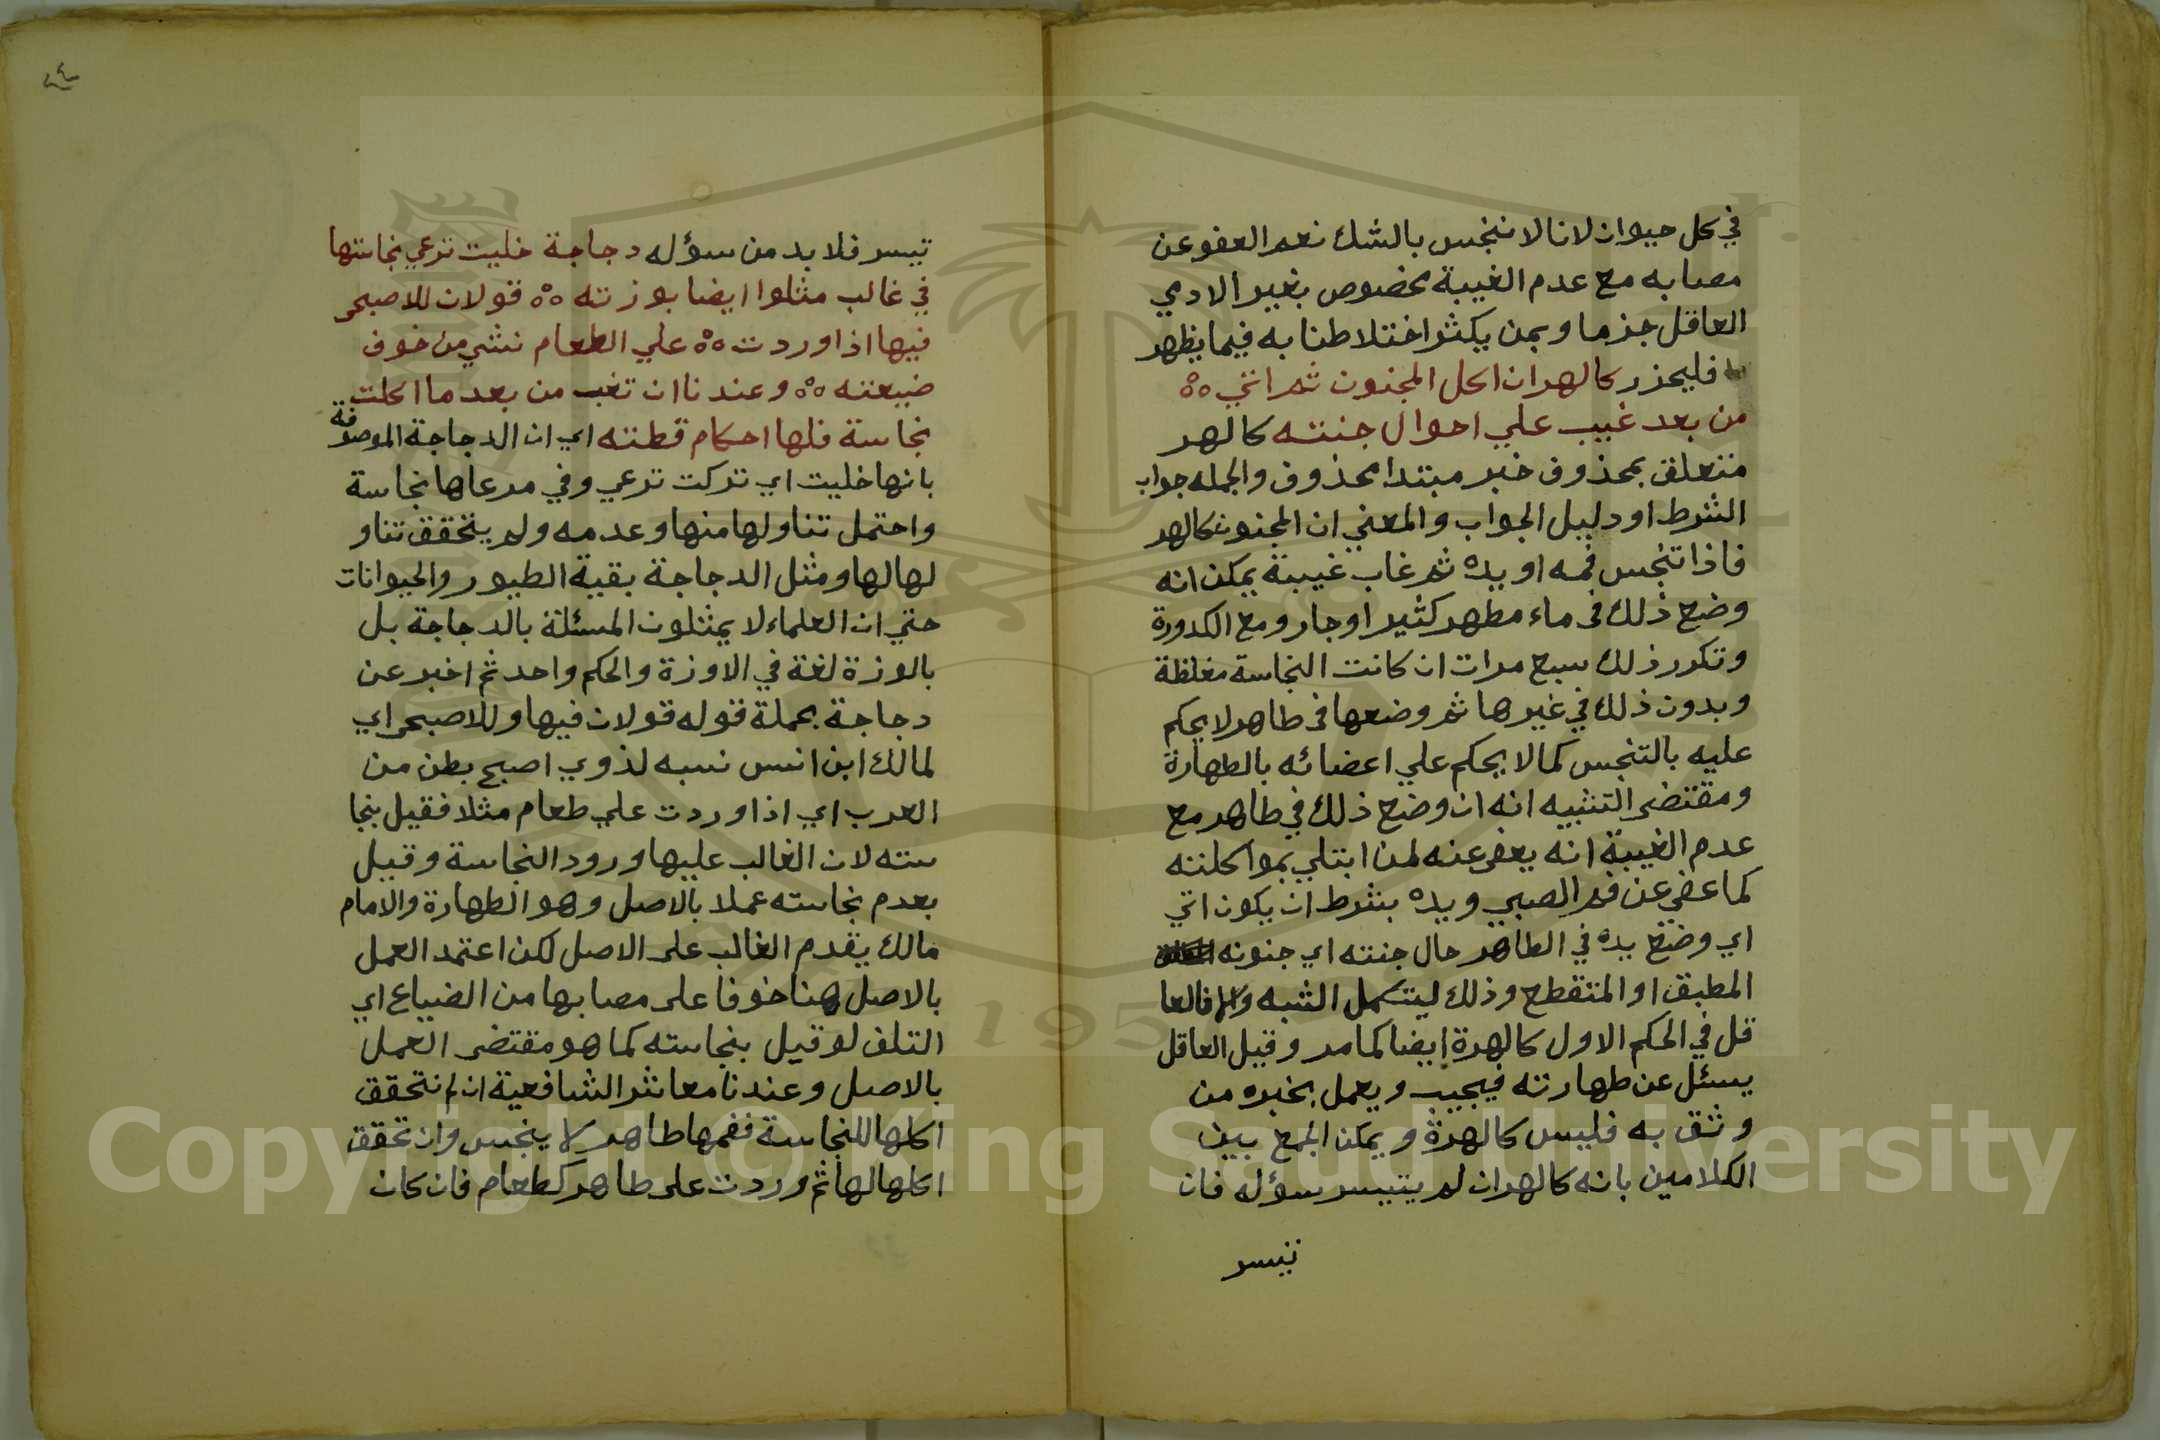 في كل حيوان لانا لا ننجس بالشك نعم العفو عن
مصابه مع عدم الغيبة مخصوص بغير الادمي
العاقل جزما وبمن يكثر اختلاطنا به فيما يظهر
فليحزر كالهران اكل المجنون ثم اتي ٥٥
من بعد غيب علي احوال جنته كالهر
متعلق بمحذوف خبر مبتدا محذوف والجمله جواب
الشرط او دليل الجواب والمعني ان المجنون كالهر
فاذا تنجس فمه او يده ثم غاب غيبة يمكن انه
وضع ذلك في ماء مطهر كثير او جار ومع الكدورة
وتكرر ذلك سبع مرات ان كانت النجاسة مغلظة
وبدون ذلك في غيرها ثم وضعها في طاهر لا يحكم
عليه بالتنجس كما لا يحكم علي اعضائه بالطهارة
ومقتضى التشبيه انه ان وضع ذلك في طاهر مع
عدم الغيبة انه يعفى عنه لمن ابتلي بمواكلته
كما عفي عن فم الصبي ويده بشرط ان يكون اتي
اي وضع يده في الطاهر حال جنته اي جنونه
المطبق او المتقطع وذلك ليتكمل الشبه والا فالعا
قل في الحكم الاول كالهرة ايضا كما مر وقيل العاقل
يسئل عن طهارته فيجيب ويعمل بخبره من
وثق به فليس كالهرة ويمكن الجمع بين
الكلامين بانه كالهران لم يتيسر سؤله فان
تيسر
تيسر فلا بد من سؤله دجاجة خليت ترعي نجاستها
في غالب مثلوا ايضا بوزته ٥٥ قولان للاصبحى
فيها اذا وردت ٥٥ علي الطعام نشي من خوف
ضيعته ٥٥ وعندنا ان تغب من بعد ما اكلت
نجاسة فلها احكام قطته اي ان الدجاجة الموصوفة
بانها خليت اي تركت ترعي وفي مرعاها نجاسة
واحتمل تناولها منها وعدمه ولم يتحقق تناو
لها لها ومثل الدجاجة بقية الطيور والحيوانات
حتي ان العلماء لا يمثلون المسئلة بالدجاجة بل
بالوزة لغة في الاوزة والحكم واحد ثم اخبر عن
دجاجة بجملة قوله قولان فيها وللاصبحى اي
لمالك ابن انس نسبه لذوي اصبح بطن من
العرب اي اذا وردت علي طعام مثلا فقيل بنجا
سته لان الغالب عليها ورود النجاسة وقيل
بعدم نجاسته عملا بالاصل وهو الطهارة والامام
مالك يقدم الغالب على الاصل لكن اعتمد العمل
بالاصل هنا خوفا على مصابها من الضياع اي
التلف لو قيل بنجاسته كما هو مقتضى العمل
بالاصل وعندنا معاشر الشافعية ان لم نتحقق
اكلها للنجاسة ففمها طاهر لا ينجس وان تحقق
اكلها لها ثم وردت على طاهر كطعام فان كان
Copyright © King Saud University
1957